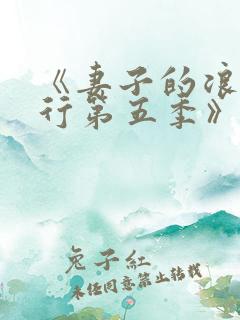 《妻子的浪
行第五季》
兔子红
未经同意禁止转载